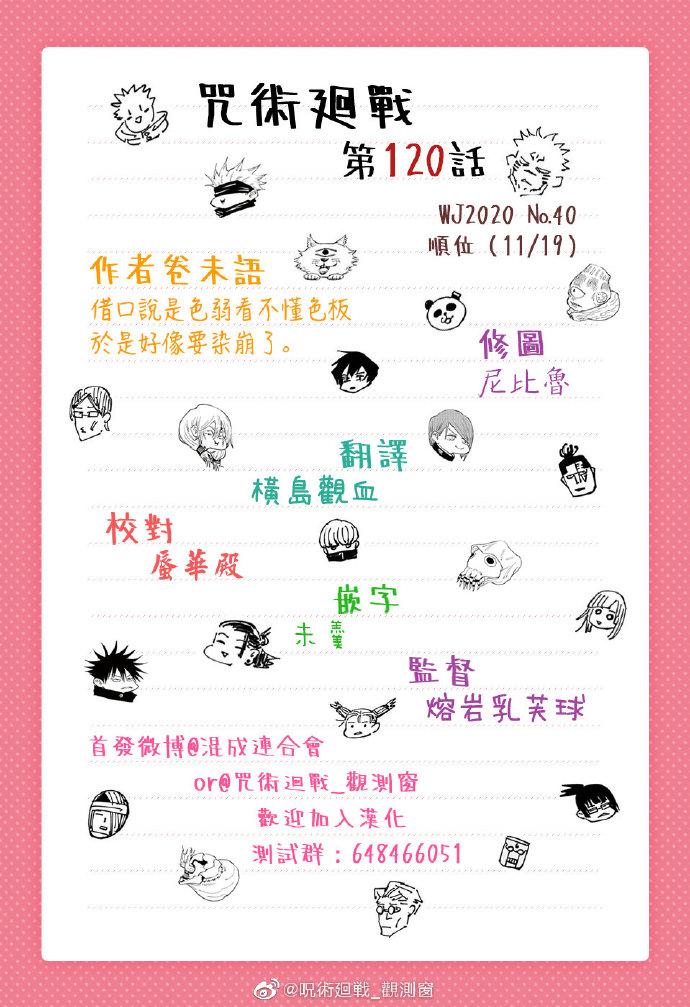 咒術廻戰
第120話
WJ2020 No.40
順位(11/19)
作者卷末語
借口說是色弱看不懂色板
於是好像要染崩了。
修圖
尼比魯
翻譯
橫島觀血
校對
蜃華殿
嵌字
未羹
監督
熔岩乳芙球
首發微博@混成連合會
or@咒術廻戰_觀測窗
歡迎加入漢化
測試群：648466051
@呪術廻戦_觀測窗